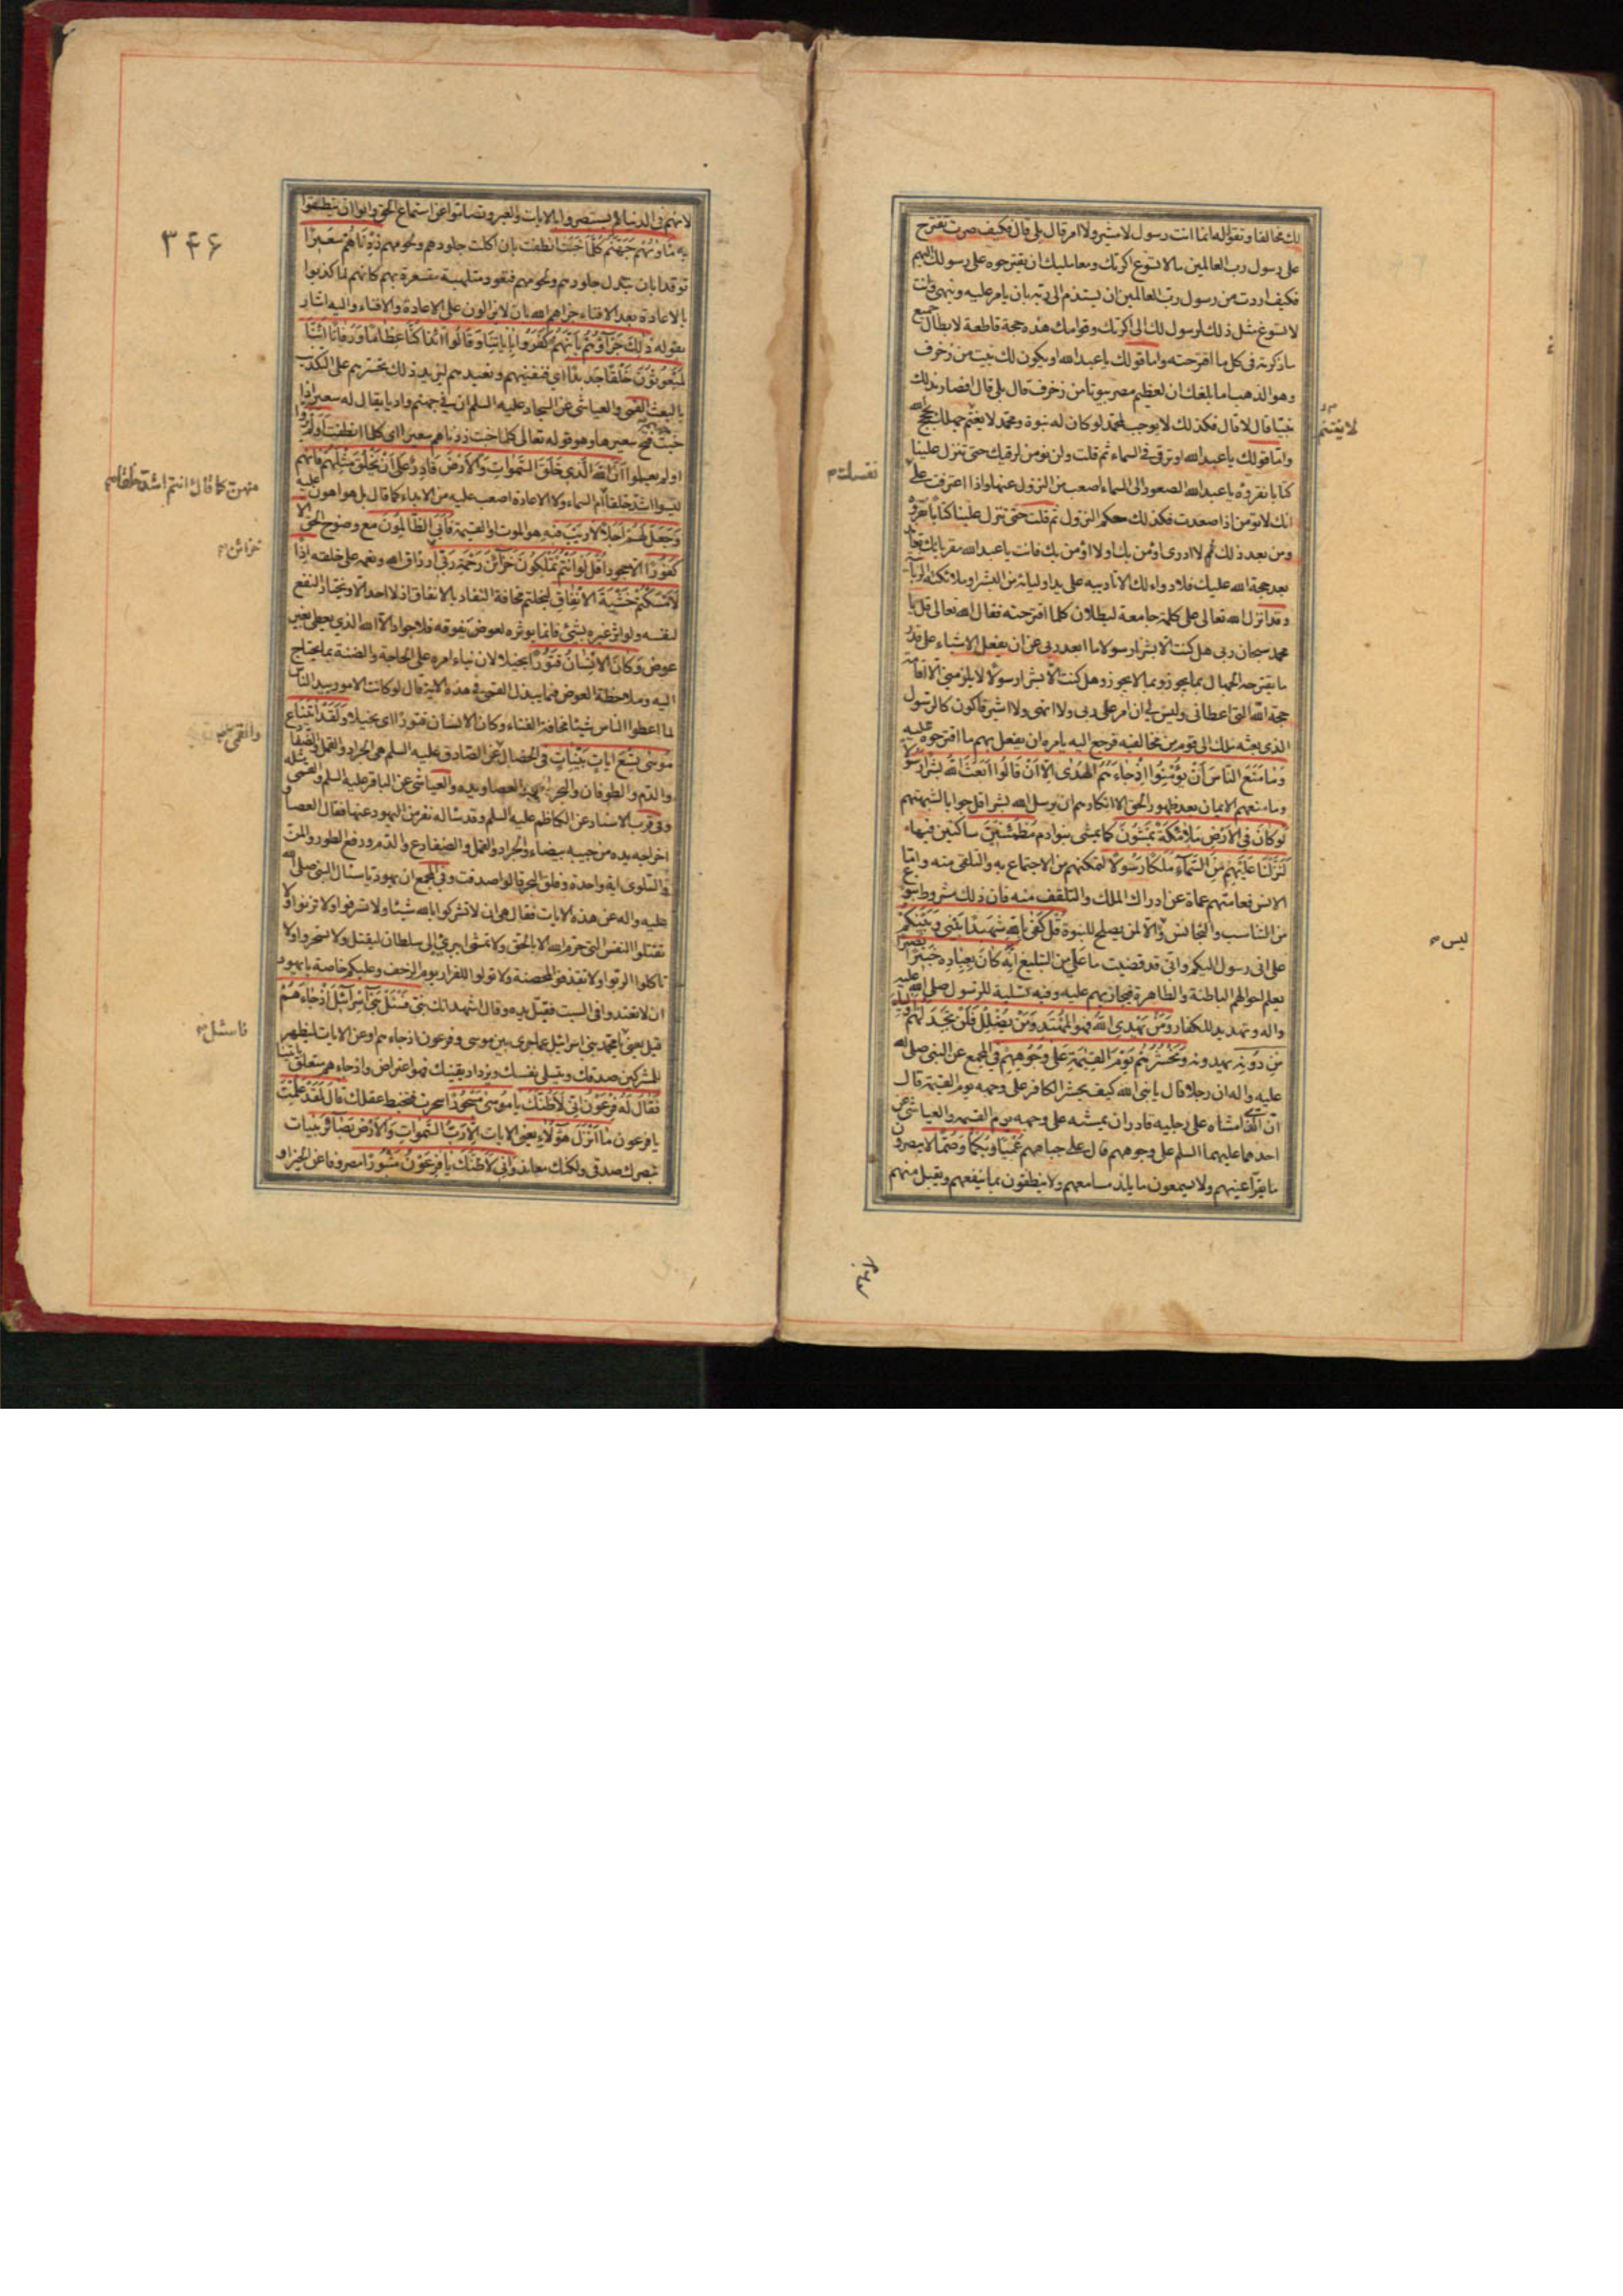 لك مخالفا وتقول له انما انت رسول لا مشير ولا امر قال بلى قال فكيف صرت تقترح
على رسول رب العالمين ما لا تسوغ اكرتك ومعامليك ان يقترحوه على رسولك اليهم
فكيف اردت من رسول رب العالمين ان يستذم الى ربه بان يامر عليه وينهى وانت
لا تسوغ مثل ذلك لرسولك الى اكرتك وقوامك هذه حجة قاطعة لابطال جميع
ما ذكرته في كل ما اقترحته واما قولك يا عبد الله او يكون لك بيت من زخرف
وهو الذهب اما بلغك ان لعظيم مصر بيوتا من زخرف قال بلى قال افصار بذلك
نبيا قال لا قال فكذلك لا يوجب لمحمد لو كان له نبوة ومحمد لا يغتنم جهلك بحجج الله
لا يغتنم
واما قولك يا عبد الله او ترقى في السماء ثم قلت ولن نؤمن لرقيك حتى تنزل علينا
كتابا نقرؤه يا عبد الله الصعود الى السماء اصعب من النزول عنها واذا اعترفت على
نفسك
انك لا تؤمن اذا صعدت فكذلك حكم النزول ثم قلت حتى تنزل علينا كتابا نقرؤه
ومن بعد ذلك ثم لا ادرى اؤمن بك او لا اؤمن بك فانت يا عبد الله مقر بانك تعاند
بعد حجة الله عليك فلا دواء لك الا تاديبه على يد اوليائه من البشر او ملائكته الزبانية
وقد انزل الله تعالى على كلمة جامعة لبطلان كلما اقترحته فقال الله تعالى قل يا
محمد سبحان ربى هل كنت الا بشرا رسولا ما ابعد ربى عن ان يفعل الاشياء على قدر
ما يقترحه الجهال بما يجوز وبما لا يجوز وهل كنت الا بشرا رسولا لا يلزمني الا اقامة
حجة الله التى اعطانى وليس لى ان امر على ربى ولا انهى ولا اشير فاكون كالرسول
الذى بعثه ملك الى قوم من مخالفيه فرجع اليه يامره ان يفعل بهم ما اقترحوه عليه
وَمَا مَنَعَ النَّاسَ أَنْ يُؤْمِنُوا إِذْ جَاءَهُمُ الْهُدٰى إِلَّا أَنْ قَالُوا أَبَعَثَ اللهُ بَشَرًا رَسُولًا
وما منعهم الايمان بعد ظهور الحق الا انكارهم ان يرسل الله بشرا قل جوابا لشبهتهم
لَوْ كَانَ فِي الْأَرْضِ مَلَائِكَةٌ يَمْشُونَ كما يمشى بنو ادم مُطْمَئِنِّينَ ساكنين فيها
لَنَزَّلْنَا عَلَيْهِمْ مِنَ السَّمَاءِ مَلَكًا رَسُولًا لتمكنهم من الاجتماع به والتلقى منه واما
الانس فعامتهم عماة عن ادراك الملك والتلقف منه فان ذلك مشروط بنوع
من التناسب والتجانس والا لمن يصلح للنبوة قُلْ كَفٰى بِاللهِ شَهِيدًا بَيْنِي وَبَيْنَكُمْ
ليس
على انى رسول اليكم وانى قد قضيت ما على من التبليغ إِنَّهُ كَانَ بِعِبَادِهِ خَبِيرًا بَصِيرًا
يعلم احوالهم الباطنة والظاهرة فيجازيهم عليه وفيه تسلية للرسول صلى الله عليه
واله وتهديد للكفار وَمَنْ يَهْدِي اللهُ فَهُوَ الْمُهْتَدِ وَمَنْ يُضْلِلْ فَلَنْ تَجِدَ لَهُمْ أَوْلِيَاءَ
مِنْ دُونِهِ يهدونه وَنَحْشُرُهُمْ يَوْمَ الْقِيٰمَةِ عَلٰى وُجُوهِهِمْ في المجمع عن النبى صلى الله
عليه واله ان رجلا قال يا نبى الله كيف يحشر الكافر على وجهه يوم القيمة قال
ان الذى امشاه على رجليه قادر ان يمشيه على وجهه يوم القيمة والعياشى عن
احدهما عليهما السلم على وجوههم قال على جباههم عُمْيًا وَبُكْمًا وَصُمًّا لا يبصرون
ما يقر اعينهم ولا يسمعون ما يلذ مسامعهم ولا ينطقون بما ينفعهم ويقبل منهم
٣۴۶
لانهم في الدنيا لم يستبصروا بالايات والعبر وتصاموا عن استماع الحق وابوا ان ينطقوا
به مَأْوٰيهُمْ جَهَنَّمُ كُلَّمَا خَبَتْ انطفت بان اكلت جلودهم ولحومهم زِدْنَاهُمْ سَعِيرًا
توقدا بان تبدل جلودهم ولحومهم فتعود ملتهبة متسعرة بهم كانهم لما كذبوا
بالاعادة بعد الافناء جزاهم الله بان لا يزالون على الاعادة والافناء واليه اشار
بقوله ذٰلِكَ جَزَاؤُهُمْ بِأَنَّهُمْ كَفَرُوا بِآيَاتِنَا وَقَالُوا أَئِذَا كُنَّا عِظَامًا وَرُفَاتًا أَئِنَّا
لَمَبْعُوثُونَ خَلْقًا جَدِيدًا اى فنفنيهم ونعيدهم ليزيد ذلك تحسرهم على التكذيب
بالبعث القمى والعياشى عن السجاد عليه السلم ان في جهنم واديا يقال له سعير اذا
خبت جهنم فتح سعيرها وهو قوله تعالى كلما خبت زدناهم سعيرا اى كلما انطفت أَوَلَمْ يَرَوْا
اولم يعلموا أَنَّ اللهَ الَّذِي خَلَقَ السَّمٰوَاتِ وَالْأَرْضَ قَادِرٌ عَلٰى أَنْ يَخْلُقَ مِثْلَهُمْ فانهم
ليسوا اشد خلقا ام السماء ولا الاعادة اصعب عليه من الابداء كما قال بل هو اهون عليه
منهن كما قال ءانتم اشد خلقا ام
وَجَعَلَ لَهُمْ أَجَلًا لَا رَيْبَ فِيهِ هو الموت او القيمة فَأَبَى الظَّالِمُونَ مع وضوح الحق إِلَّا
كُفُورًا الا جحودا قُلْ لَوْ أَنْتُمْ تَمْلِكُونَ خَزَائِنَ رَحْمَةِ رَبِّي ارزاق الله ونعمه على خلقه إِذًا
خزائن
لَأَمْسَكْتُمْ خَشْيَةَ الْإِنْفَاقِ لبخلتم مخافة النفاد بالانفاق اذ لا احد الا ويختار النفع
لنفسه ولو اثر غيره بشئ فانما يوثره لعوض يفوقه فلا جواد الا الله الذى يعطى بغير
عوض وَكَانَ الْإِنْسَانُ قَتُورًا بخيلا لان بناء امره على الحاجة والضنة بما يحتاج
اليه وملاحظة العوض فيما يبذل القمى في هذه الاية قال لو كانت الامور بيد الناس
لما اعطوا الناس شيئا مخافة الفناء وكان الانسان قتورا اى بخيلا وَلَقَدْ آتَيْنَا
مُوسٰى تِسْعَ آيَاتٍ بَيِّنَاتٍ في الخصال عن الصادق عليه السلم هى الجراد والقمل والضفادع
والقمى
والدم والطوفان والبحر والحجر والعصا ويده والعياشى عن الباقر عليه السلم والقمى مثله
وفي قرب الاسناد عن الكاظم عليه السلم وقد ساله نفر من اليهود عنها فقال العصا و
اخراجه يده من جيبه بيضاء والجراد والقمل والضفادع والدم ورفع الطور والمن
والسلوى اية واحدة وفلق البحر قالوا صدقت وفي المجمع ان يهوديا سئل النبى صلى الله
عليه واله عن هذه الايات فقال هى ان لا تشركوا بالله شيئا ولا تسرقوا ولا تزنوا ولا
تقتلوا النفس التى حرم الله الا بالحق ولا تمشوا ببرئ الى سلطان ليقتل ولا تسحروا ولا
تاكلوا الربوا ولا تقذفوا المحصنة ولا تولوا للفرار يوم الزحف وعليكم خاصة يا يهود
ان لا تعتدوا في السبت فقبل يده وقال اشهد انك نبى فَسْئَلْ بَنِي إِسْرَائِيلَ إِذْ جَاءَهُمْ
قيل يعنى يا محمد بنى اسرائيل عما جرى بين موسى وفرعون اذ جاءهم او عن الايات ليظهر
فاسئل
للمشركين صدقك ويتسلى نفسك ويزداد يقينك فهو اعتراض واذ جاءهم متعلق باتينا
فَقَالَ لَهُ فِرْعَوْنُ إِنِّي لَأَظُنُّكَ يَا مُوسٰى مَسْحُورًا سحرت فتخبط عقلك قَالَ لَقَدْ عَلِمْتَ
يا فرعون مَا أَنْزَلَ هٰؤُلَاءِ يعنى الايات إِلَّا رَبُّ السَّمٰوَاتِ وَالْأَرْضِ بَصَائِرَ بينات
تبصرك صدقى ولكنك معاند وَإِنِّي لَأَظُنُّكَ يَا فِرْعَوْنُ مَثْبُورًا مصروفا عن الخير او